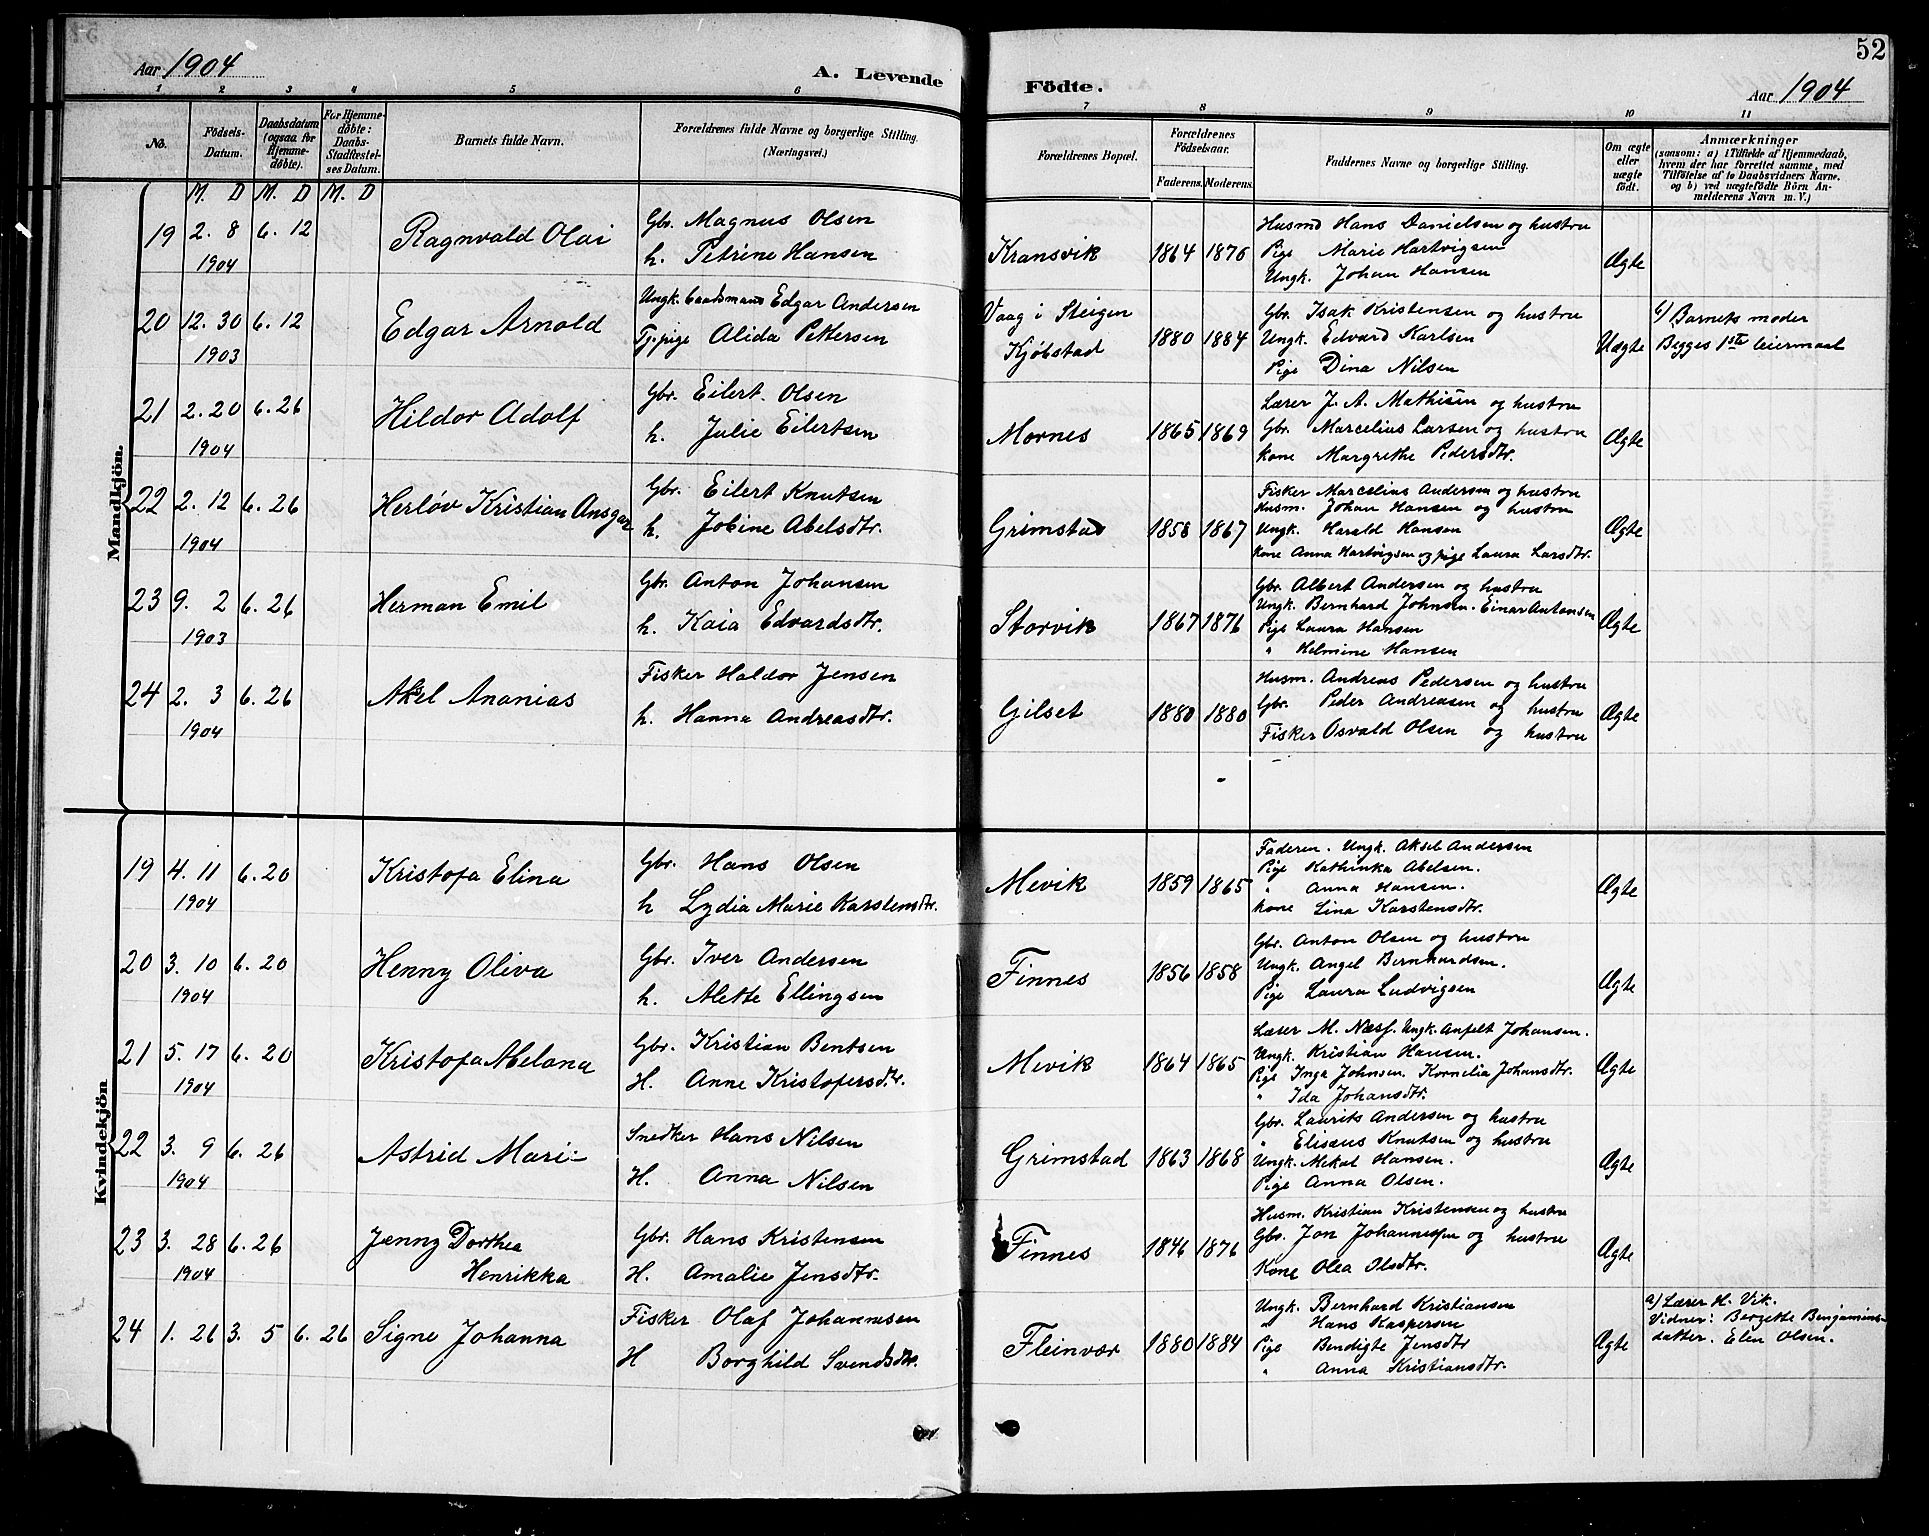 Aar 1904
A. Levende Födte.
Aar 1904
52
1 2 3 4 5 6 7 8 9 10 11
No.
Födsels-Datum.
Daabsdatum (ogsaa for Hjemmedöbte).
For Hjemmedöbte: Daabs-Stadfestelses Datum.
Barnets fulde Navn.
Forældrenes fulde Navne og borgerlige Stilling. (Næringsvei.)
Forældrenes Bopæl.
Forældrenes Födselsaar.
Faderens. Moderens.
Faddernes Navne og borgerlige Stilling.
Om ægte eller uægte födt.
Anmærkninger
(saasom: a) i Tilfælde af Hjemmedaab, hvem der har forrettet samme, med Tilföielse af to Daabsvidners Navne, og b) ved uægtefödte Börn Anmelderens Navn m. V.)
M. D M. D M. D
Mandkjön.
19 2. 8 1904 6. 12 Ragnvald Olai
Gbr. Magnus Olsen
h. Petrine Hansen
Kransvik 1864 1876
Husmd Hans Danielsen og hustru
Pige Marie Hartvigsen
Ungk. Johan Hansen
Ægte
20 12. 30 1903 6. 12 Edgar Arnold
Ungk. baadsmand Edgar Andersen
Tj.pige Alida Pettersen
Vaag i Steigen
Kjöbstad 1880 1884
Gbr. Isak Kristensen og hustru
Ungk. Edvard Karlsen
Pige Dina Nilsen
Uægte
Barnets moder
Begges 1ste leiermaal
21 2. 20 1904 6. 26 Hildor Adolf
Gbr. Eilert Olsen
h. Julie Eilertsen
Mornes 1865 1869
Lærer J. A. Mathisen og hustru
Gbr. Marcelius Larsen og hustru
Kone Margrethe Pedersdtr.
Ægte
22 2. 12 1904 6. 26 Herløv Kristian Ansgar
Gbr. Eilert Knutsen
h. Jobine Abelsdtr.
Grimstad 1858 1867
Fisker Marcelius Andersen og hustru
Husm. Johan Hansen og hustru
Ungk. Harald Hansen
Kone Anna Hartvigsen og pige Laura Larsdtr.
Ægte
23 9. 2 1903 6. 26 Herman Emil
Gbr. Anton Johansen
h. Kaia Edvardsdtr.
Storvik 1867 1876
Gbr. Albert Andersen og hustru
Ungk. Bernhard Johnsen. Einar Antonsen
Pige Laura Hansen
" Helmine Hansen
Ægte
24 2. 3 1904 6. 26 Aksel Ananias
Fisker Haldor Jensen
h. Hanna Andreasdtr.
Gilset 1880 1880
Husm. Andreas Pedersen og hustru
Gbr. Peder Andreasen og hustru
Fisker Osvald Olsen og hustru
Ægte
Kvindekjön
19 4. 11 1904 6. 20 Kristofa Elina
Gbr. Hans Olsen
h Lydia Marie Karstensdtr.
Mevik 1859 1865
Faderen. Ungk. Aksel Andersen
Pige Kathinka Abelsen
" Anna Hansen.
Kone Lina Karstensdtr.
Ægte
20 3. 10 1904 6. 20 Henny Oliva
Gbr. Iver Andersen
h. Alette Ellingsen
Finnes 1856 1858
Gbr. Anton Olsen og hustru
Ungk. Angel Bernhardsen.
Pige Laura Ludvigsen
Ægte
21 5. 17 1904 6. 20 Kristofa Melana
Gbr. Kristian Bentsen
H. Anne Kristofersdtr.
Mevik 1864 1865
Lærer M. Næss. Ungk. Anfelt Johansen.
Ungk. Kristian Hansen.
Pige Inga Johnsen. Kornelia Johansdtr.
" Ida Johansdtr.
Ægte
22 3. 9 1904 6. 26 Astrid Marie
Snedker Hans Nilsen
H. Anna Nilsen
Grimstad 1863 1868
Gbr. Laurits Andersen og hustru
" Elisæus Knutsen og hustru
Ungk. Mekal Hansen.
Pige Anna Olsen.
Ægte
23 3. 28 1904 6. 26 Jenny Dorthea
Henrikka
Gbr. Hans Kristensen
H. Amalie Jensdtr.
Finnes 1846 1876
Husm. Kristian Kristensen og hustru
Gbr. Jon Johannessen og hustru
Kone Olea Olsdtr.
Ægte
24 1. 26 3. 5 6. 26 Signe Johanna
Fisker Olaf Johannesen
H Borghild Svendsdtr.
Fleinvær 1880 1884
Ungk. Bernhard Kristiansen
" Hans Kaspersen
Pige Bendigte Jensdtr
" Anna Kristiansdtr.
Ægte
a) Lærer H. Vik.
Vidner: Bergette Benjamins-
datter. Elen Olsen.